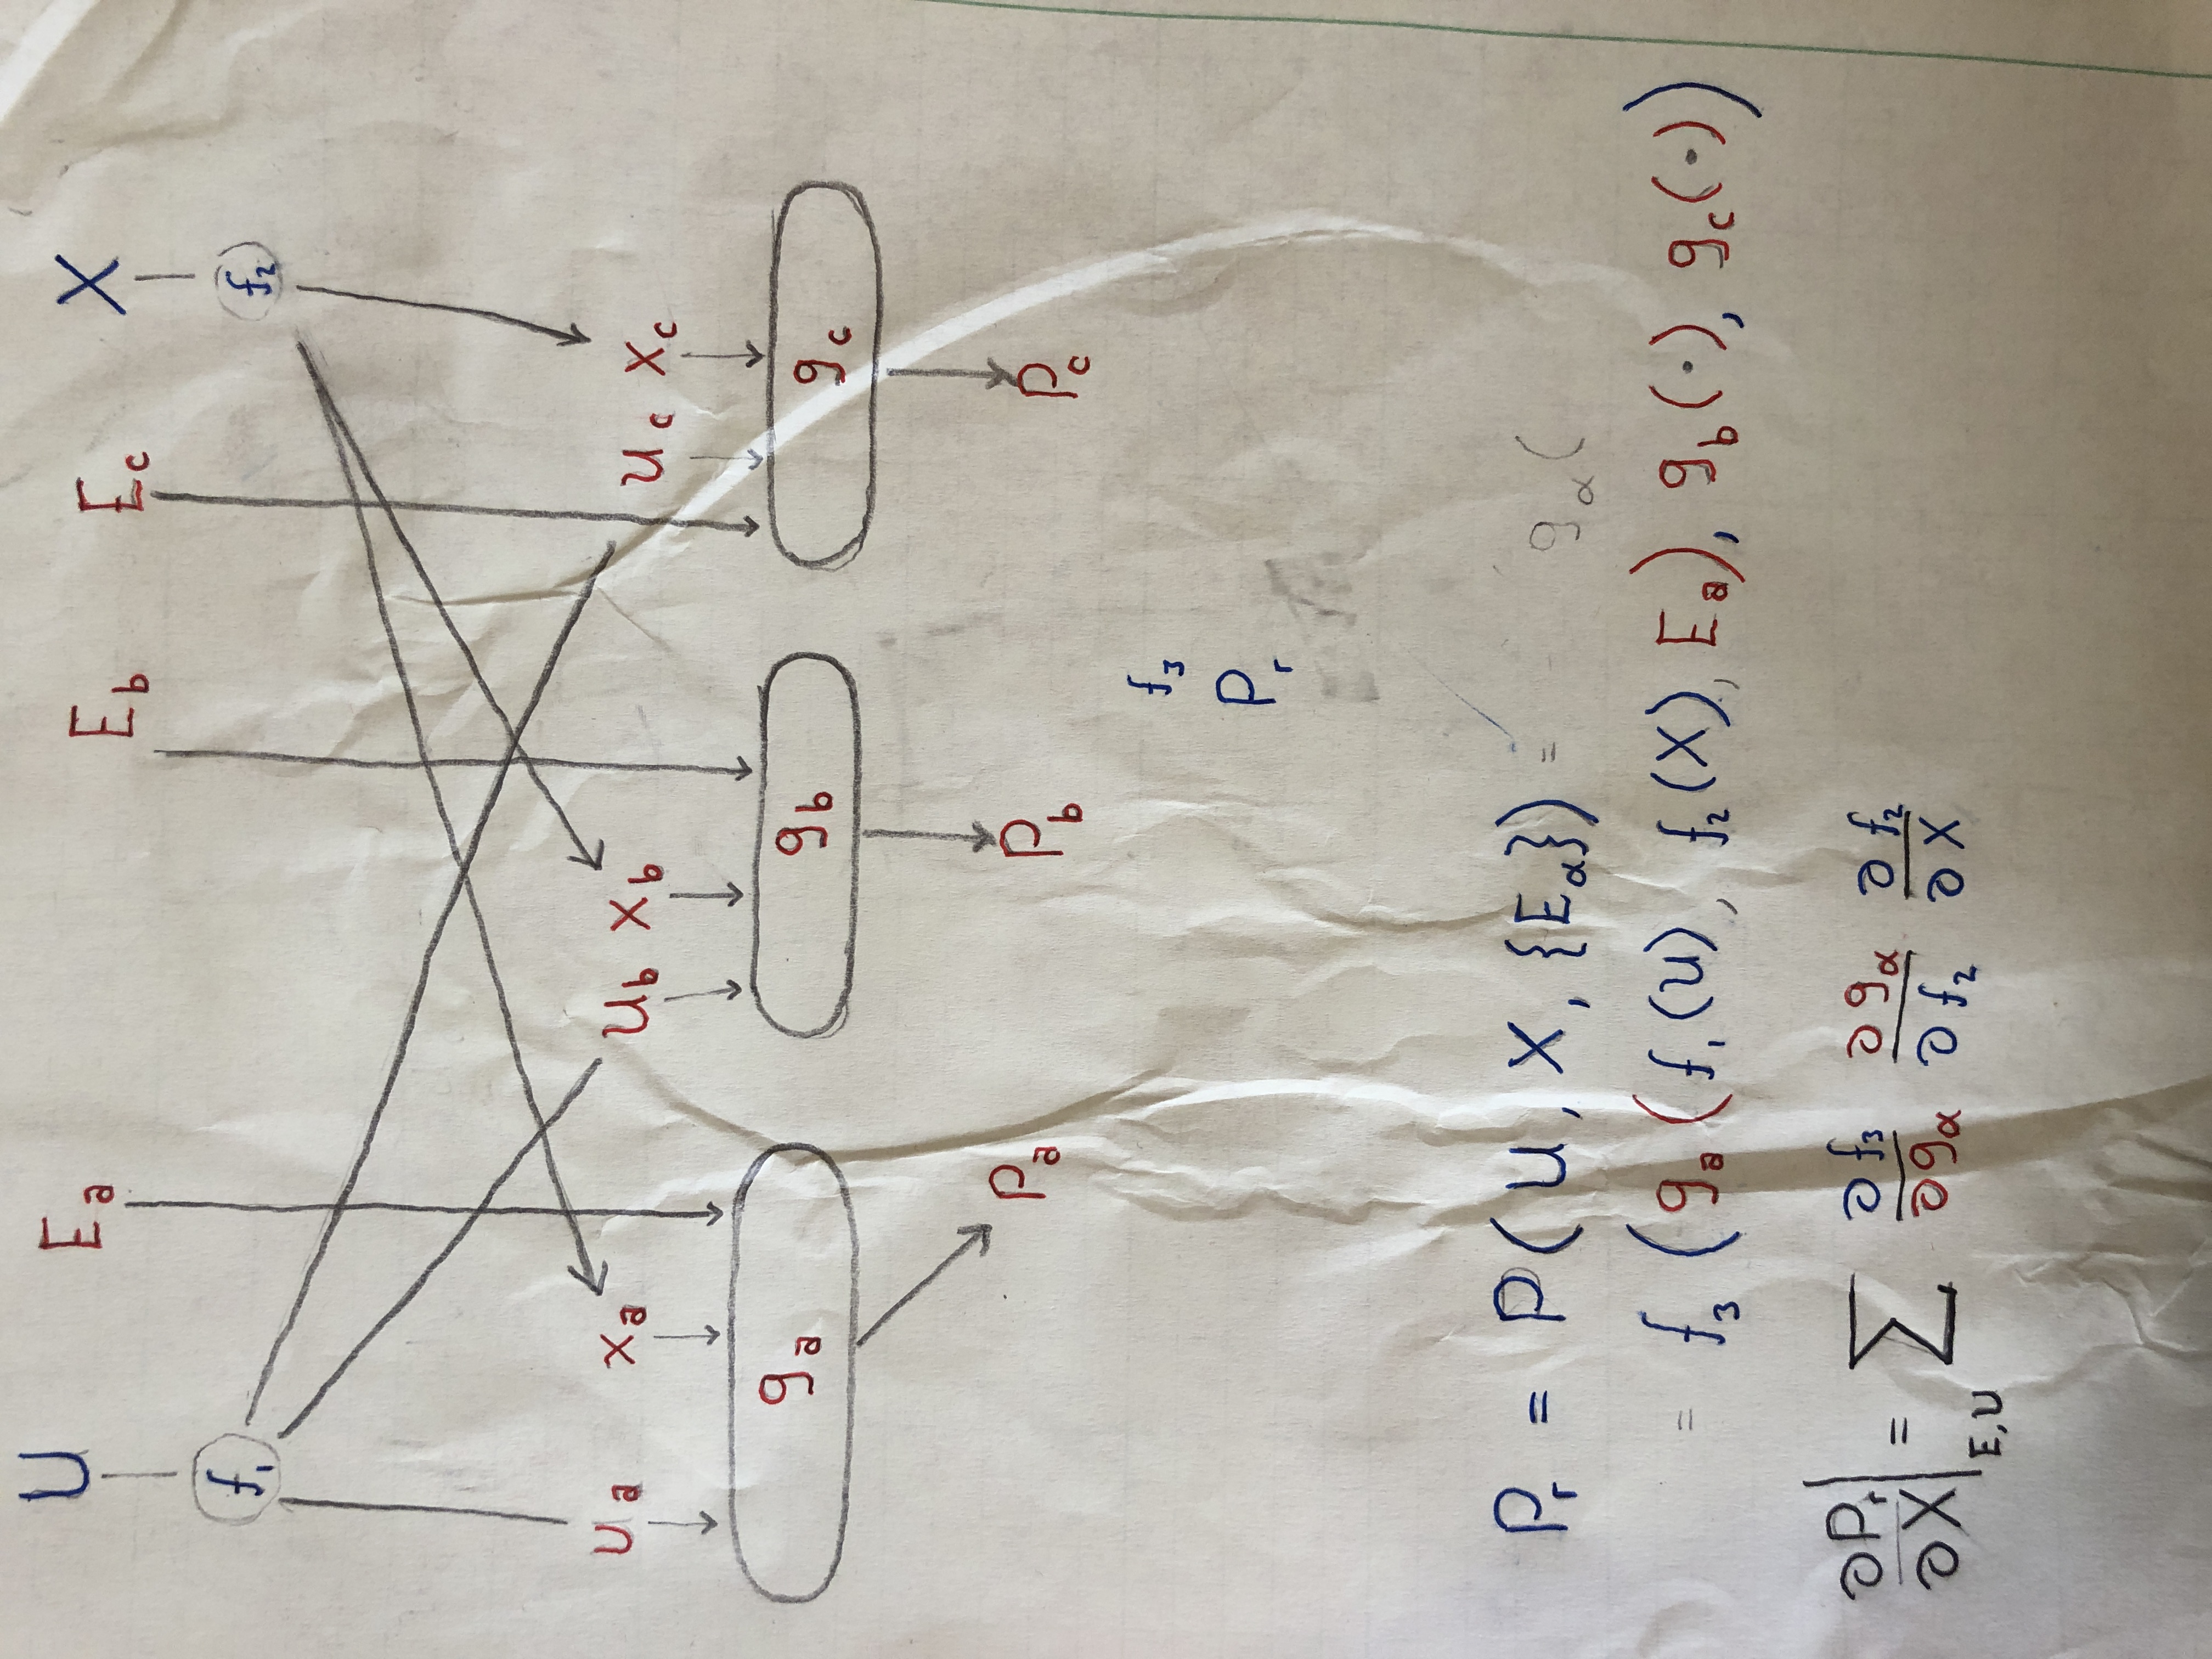 U E_a E_b E_c X
f_1 f_2
u_a x_a u_b x_b u_c x_c
g_a g_b g_c
P_a P_b P_c
f_3
P_r
P_r = P(U, X, {E_α}) = g_α(
= f_3 (g_a (f_1(U), f_2(X), E_a), g_b(·), g_c(·))
∂P_r/∂X|_E,U = Σ ∂f_3/∂g_α ∂g_α/∂f_2 ∂f_2/∂X